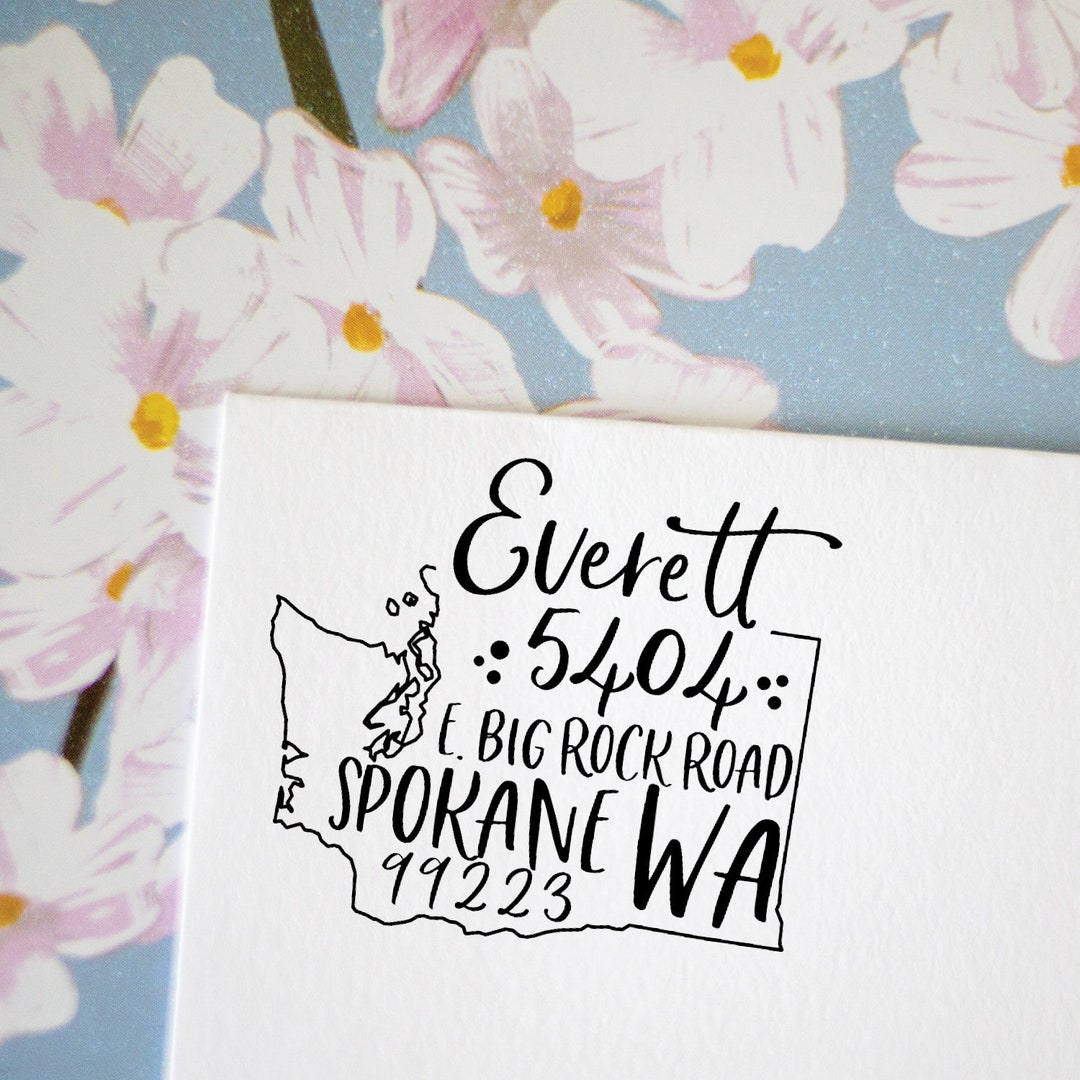 Everett
5404
E. BIG ROCK ROAD
SPOKANE WA
99223